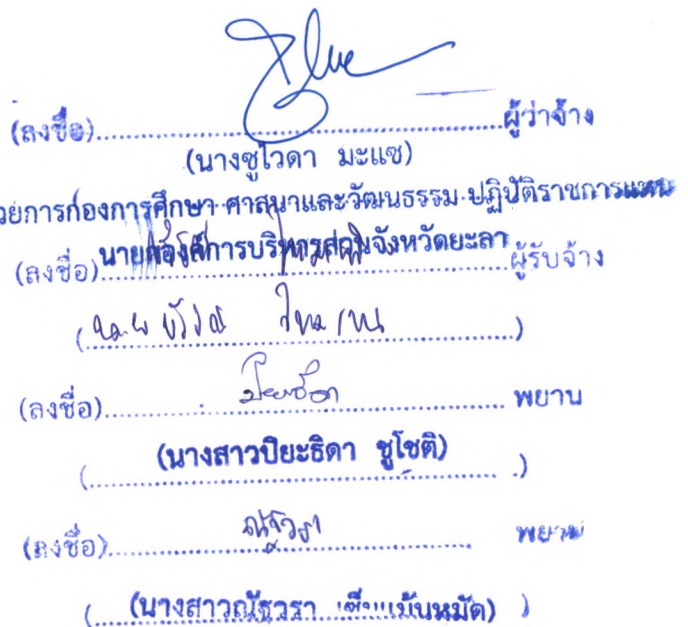 (ลงชื่อ)..............................ผู้ว่าจ้าง
(นางซูไวดา มะแซ)
วยการกองการศึกษา ศาสนาและวัฒนธรรม ปฏิบัติราชการแทน
นายกองค์การบริหารส่วนจังหวัดยะลา
(ลงชื่อ)..............................ผู้รับจ้าง
(นาย)
(ลงชื่อ)..............................พยาน
(นางสาวปิยะธิดา ชูโชติ)
(ลงชื่อ) ณัฐวรา พยาน
(นางสาวณัฐวรา)